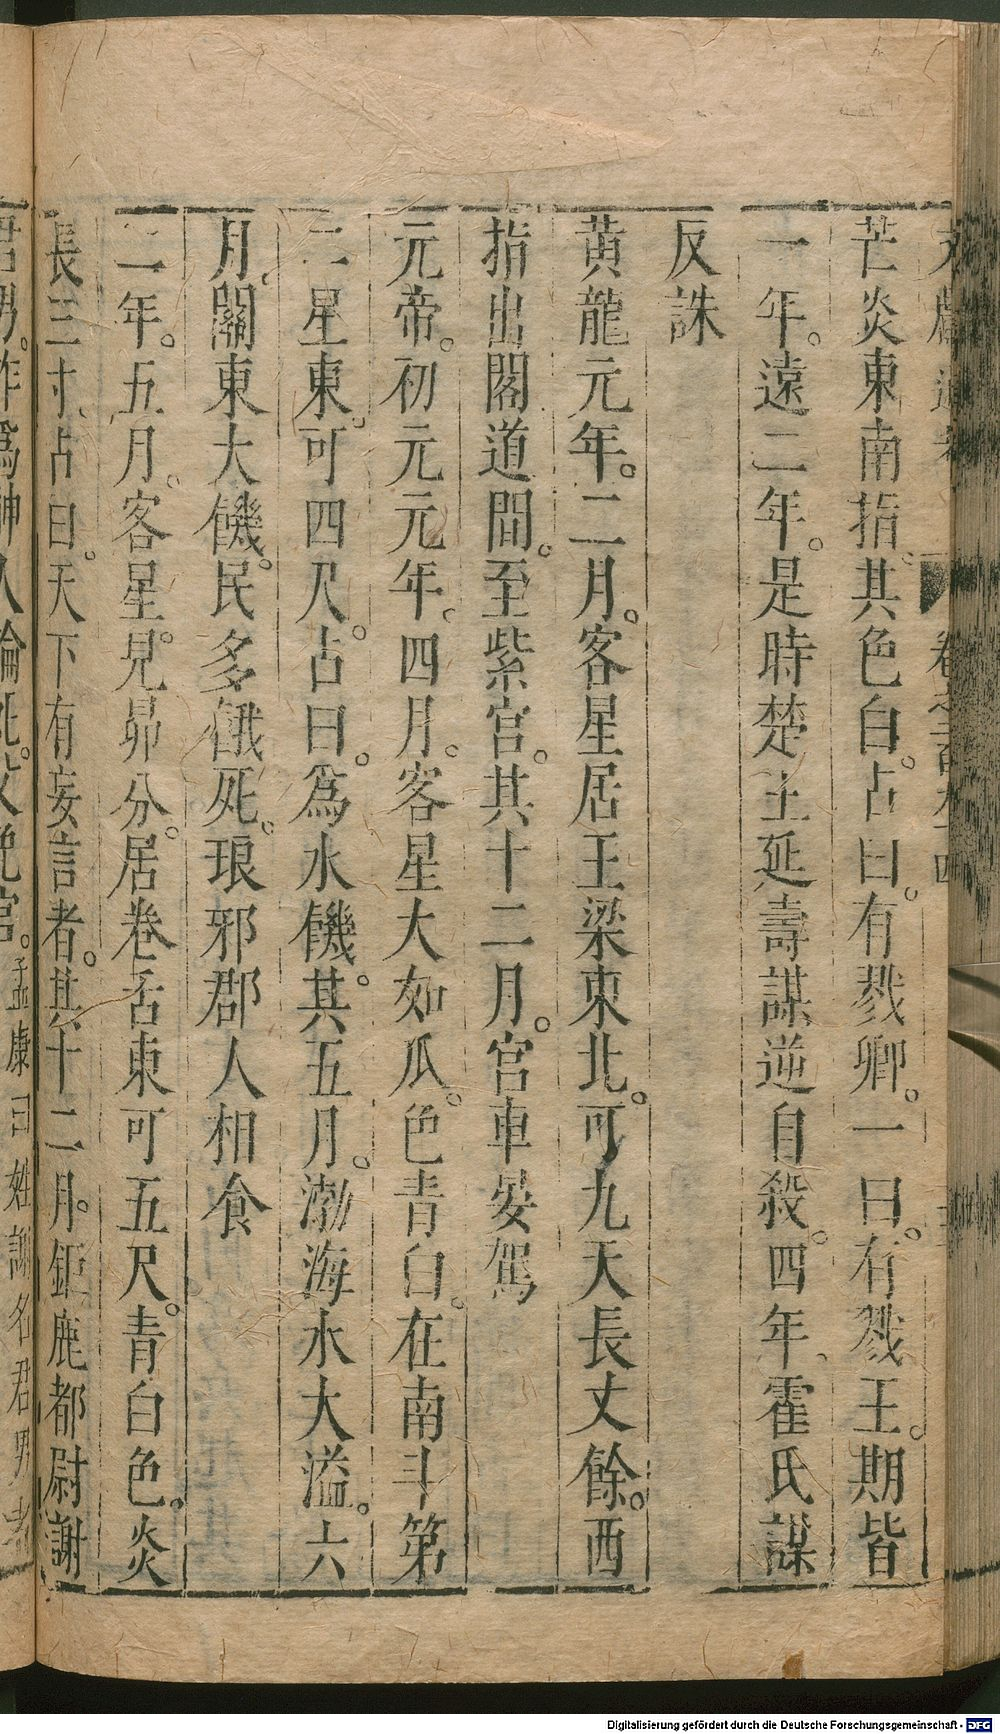 文獻通考 卷之二百九十四
芒炎東南指。其色白。占曰。有戮卿。一曰。有戮王。期皆
一年。遠二年。是時楚王延壽謀逆自殺。四年、霍氏謀
反誅
黄龍元年。二月。客星居王梁東北。可九天長丈餘。西
指出閣道間。至紫宮。其十二月。宮車晏駕
元帝。初元元年。四月。客星大如瓜。色青白。在南斗第
二星東。可四尺。占曰。爲水饑。其五月。渤海水大溢。六
月、關東大饑。民多餓死。琅邪郡人相食
二年。五月。客星見。昴分。居卷舌東可五尺。青白色。炎
長三寸、占曰。天下有妄言者。其十二月。鉅鹿都尉謝
君男。詐爲神人論死。父免官。孟康曰姓謝名君男者
Digitalisierung gefördert durch die Deutsche Forschungsgemeinschaft - DFG